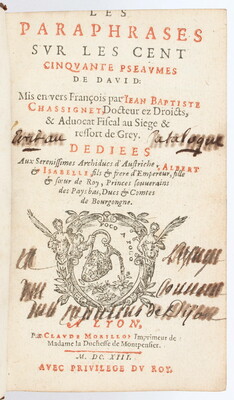 LES
PARAPHRASES
SVR LES CENT
CINQVANTE PSEAVMES
DE DAVID:
Mis en vers François par IEAN BAPTISTE
CHASSIGNET, Docteur ez Droicts,
& Aduocat Fiscal au Siege &
ressort de Grey.
DEDIEES
Aux Serenissimes Archiducs d'Austriche, ALBERT
& ISABELLE fils & frere d'Empereur, fille
& sœur de Roy, Princes souuerains
des Pays bas, Ducs & Comtes
de Bourgongne.
POCO A POCO
A LYON,
Par CLAVDE MORILLON Imprimeur de
Madame la Duchesse de Montpensier.
M. DC. XIII.
AVEC PRIVILEGE DV ROY.